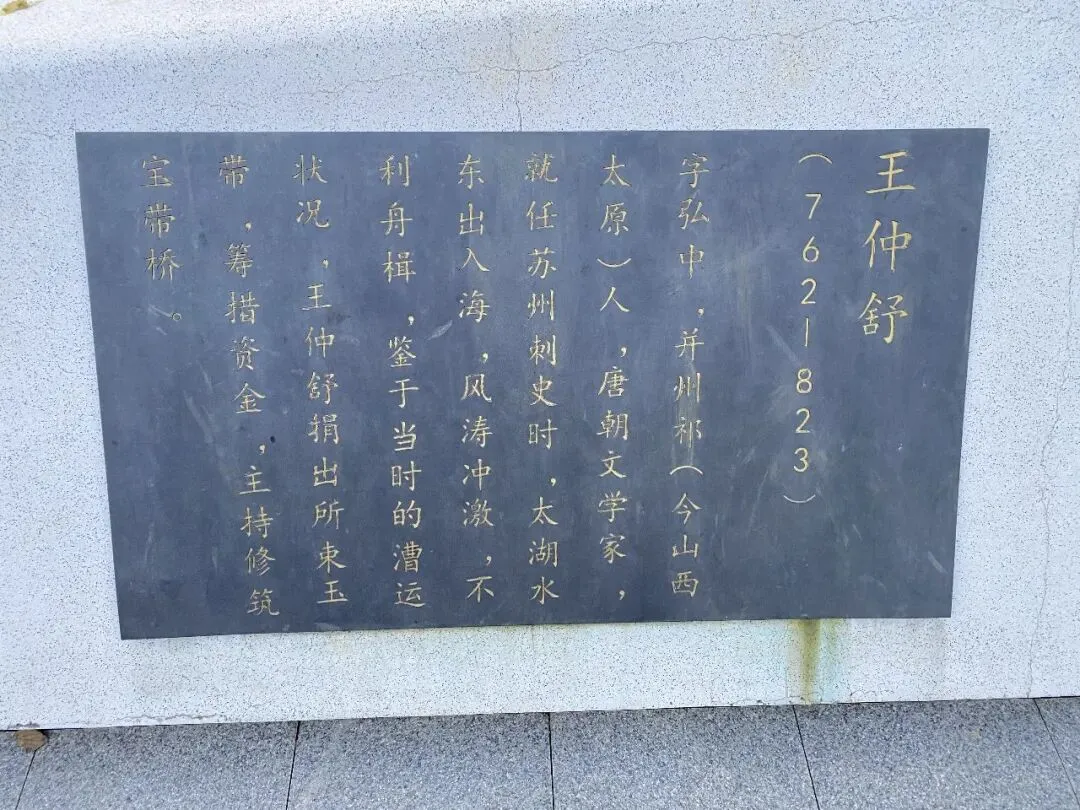 王仲舒
（762－823）
字弘中，并州祁（今山西
太原）人，唐朝文学家，
就任苏州刺史时，太湖水
东出入海，风涛冲激，不
利舟楫，鉴于当时的漕运
状况，王仲舒捐出所束玉
带，筹措资金，主持修筑
宝带桥。